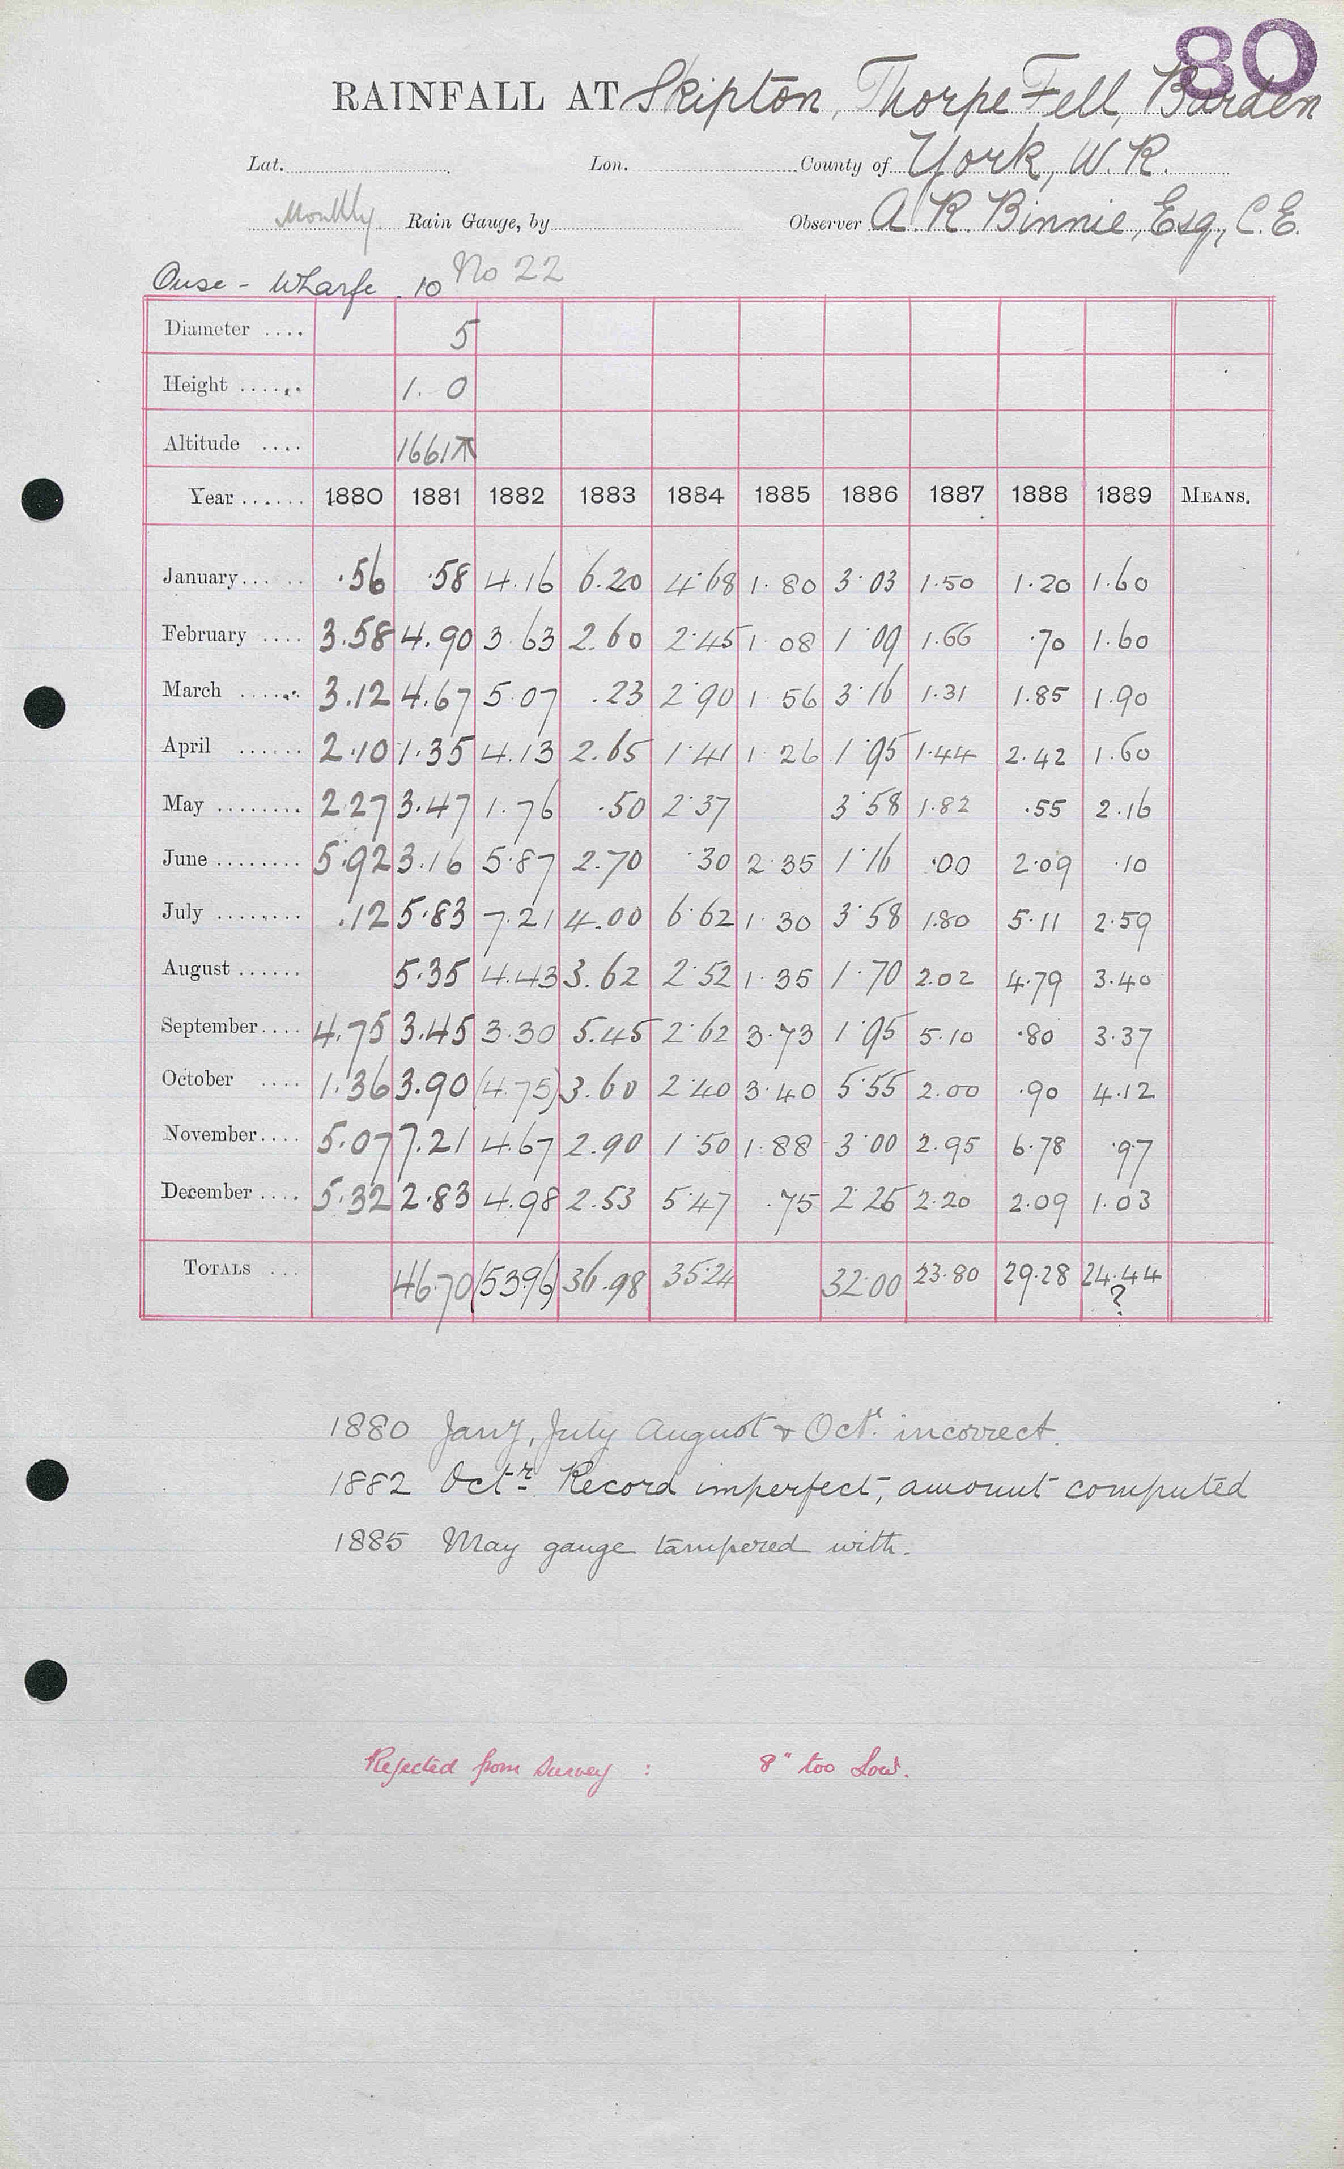 80
RAINFALL AT Skipton, Thorpe Fell, Barden
Lat. Lon. County of York, W.R.
Monthly Rain Gauge, by Observer A. R. Binnie, Esq., C.E.
Ouse - Wharfe 10 No 22
Diameter .... 5
Height ...... 1. 0
Altitude .... 1661
Year ...... 1880 1881 1882 1883 1884 1885 1886 1887 1888 1889 MEANS.
January...... .56 .58 4.16 6.20 4.68 1.80 3.03 1.50 1.20 1.60
February .... 3.58 4.90 3.63 2.60 2.45 1.08 1.09 1.66 .70 1.60
March ...... 3.12 4.67 5.07 .23 2.90 1.56 3.16 1.31 1.85 1.90
April ...... 2.10 1.35 4.13 2.65 1.41 1.26 1.95 1.44 2.42 1.60
May ........ 2.27 3.47 1.76 .50 2.37 3.58 1.82 .55 2.16
June ........ 5.92 3.16 5.87 2.70 .30 2.35 1.16 .00 2.09 .10
July ........ .12 5.83 7.21 4.00 6.62 1.30 3.58 1.80 5.11 2.59
August ...... 5.35 4.43 3.62 2.52 1.35 1.70 2.02 4.79 3.40
September.... 4.75 3.45 3.30 5.45 2.62 3.73 1.95 5.10 .80 3.37
October .... 1.36 3.90 (4.75) 3.60 2.40 3.40 5.55 2.00 .90 4.12
November.... 5.07 7.21 4.67 2.90 1.50 1.88 3.00 2.95 6.78 .97
December .... 5.32 2.83 4.98 2.53 5.47 .75 2.25 2.20 2.09 1.03
TOTALS ... 46.70 (53.96) 36.98 35.24 32.00 23.80 29.28 24.44
?
1880 Jany, July August & Octr. incorrect.
1882 Octr. Record imperfect, amount computed
1885 May gauge tampered with.
Rejected from Survey : 8" too Low.